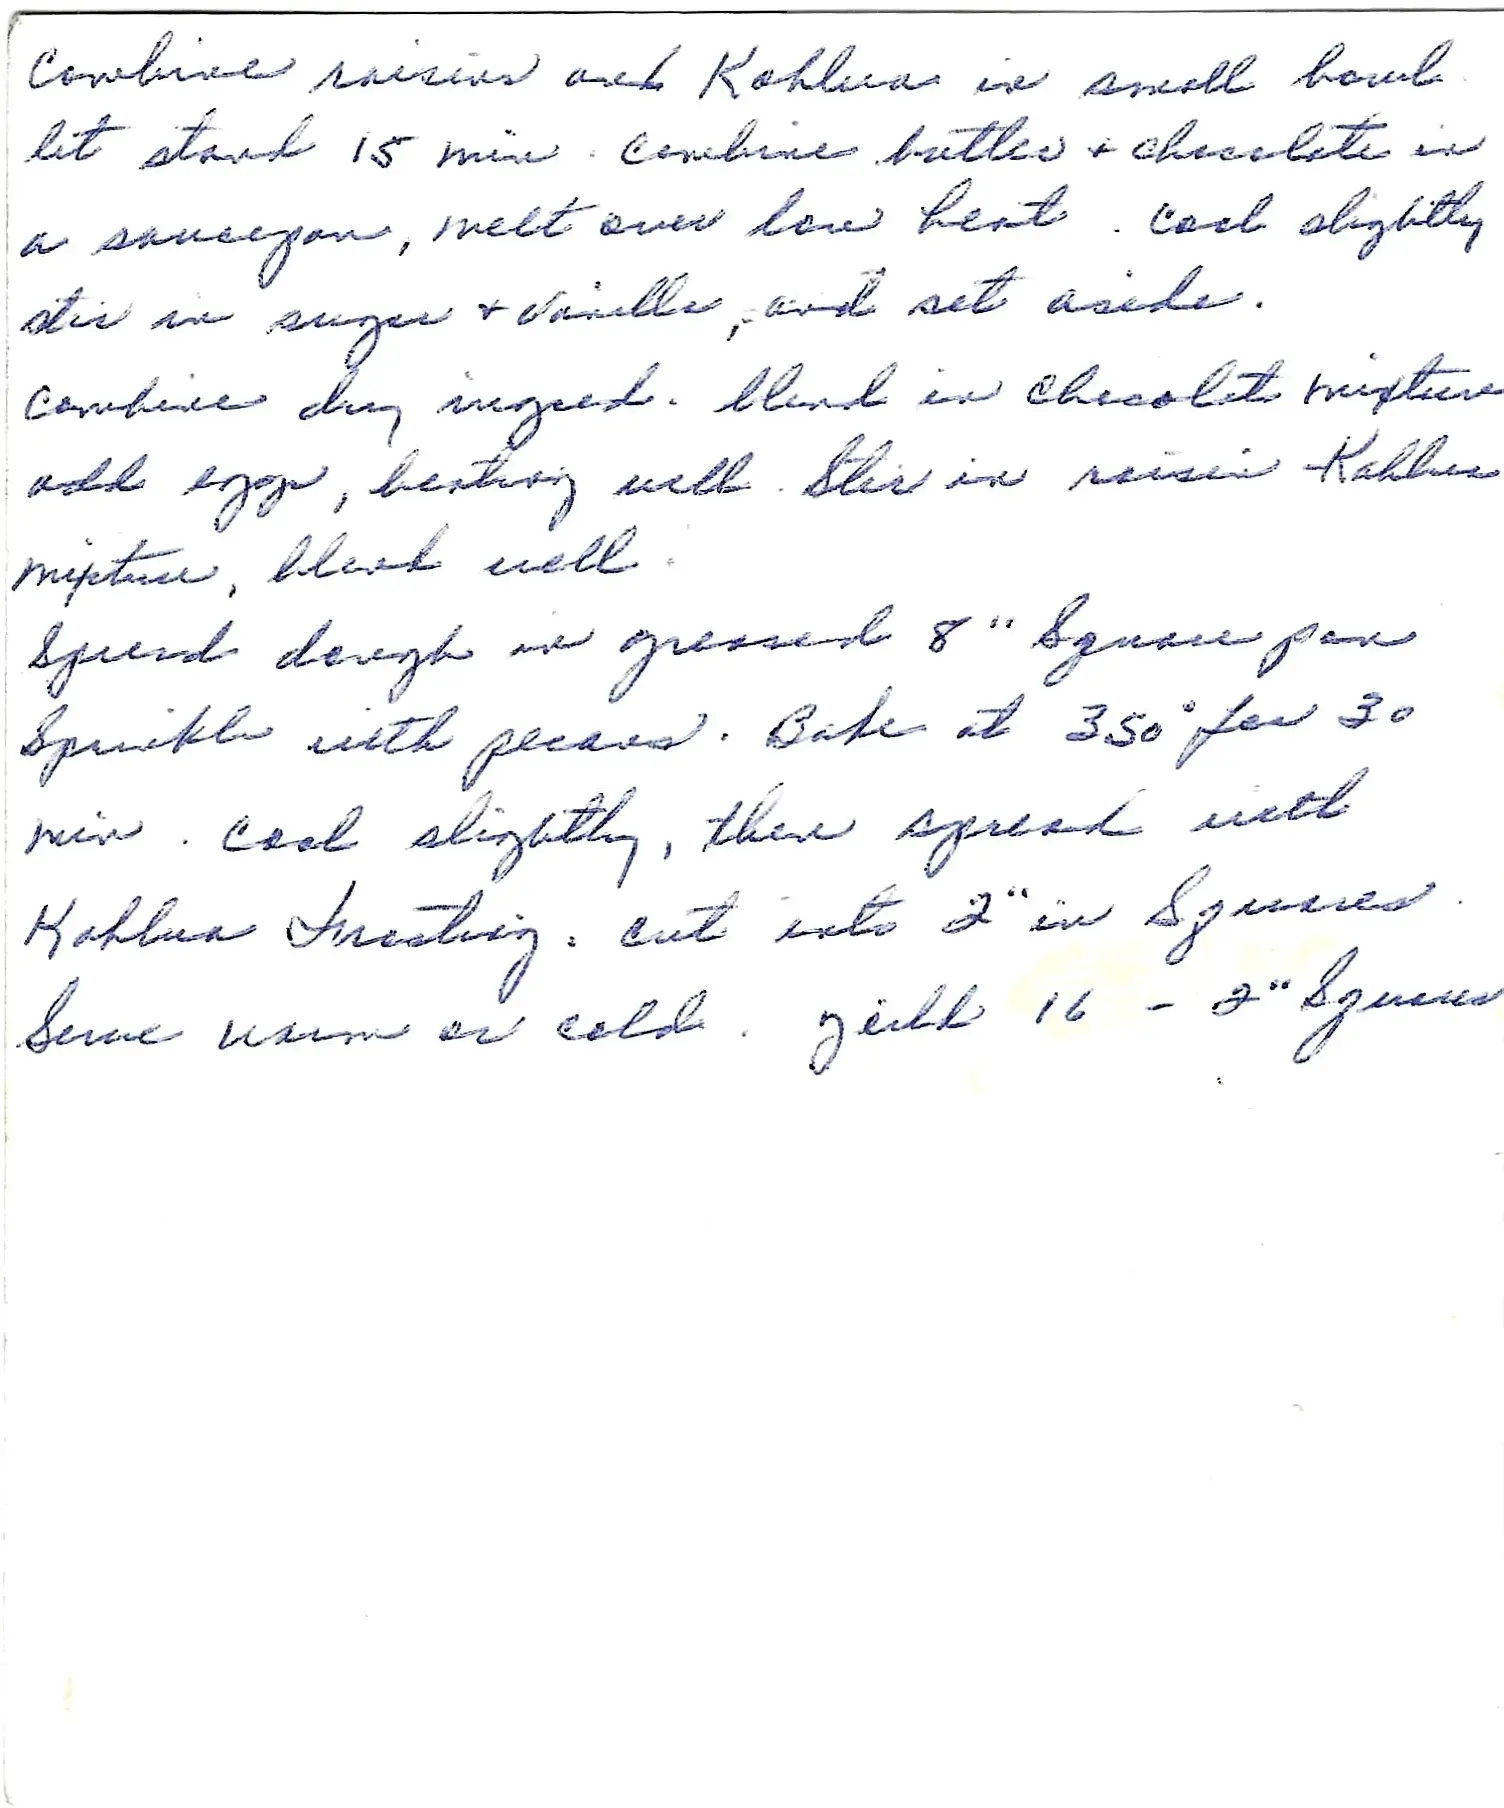 Combine raisins and Kahlua in small bowl.
let stand 15 min. Combine butter + chocolate in
a saucepan, melt over low heat. Cool slightly
stir in sugar + vanilla, and set aside.
Combine dry ingred. blend in chocolate mixture
add eggs, beating well. Stir in raisin Kahlua
mixture, blend well.
Spread dough in greased 8" Square pan
Sprinkle with pecans. Bake at 350° for 30
min. Cool slightly, then spread with
Kahlua Frosting. cut into 2" in Squares.
Serve warm or cold. yield 16 - 2" Squares